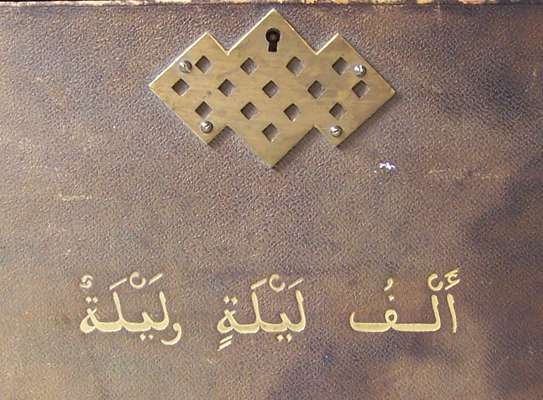 أَلْـفُ لَيْلَةٍ ولَيْلَةٌ